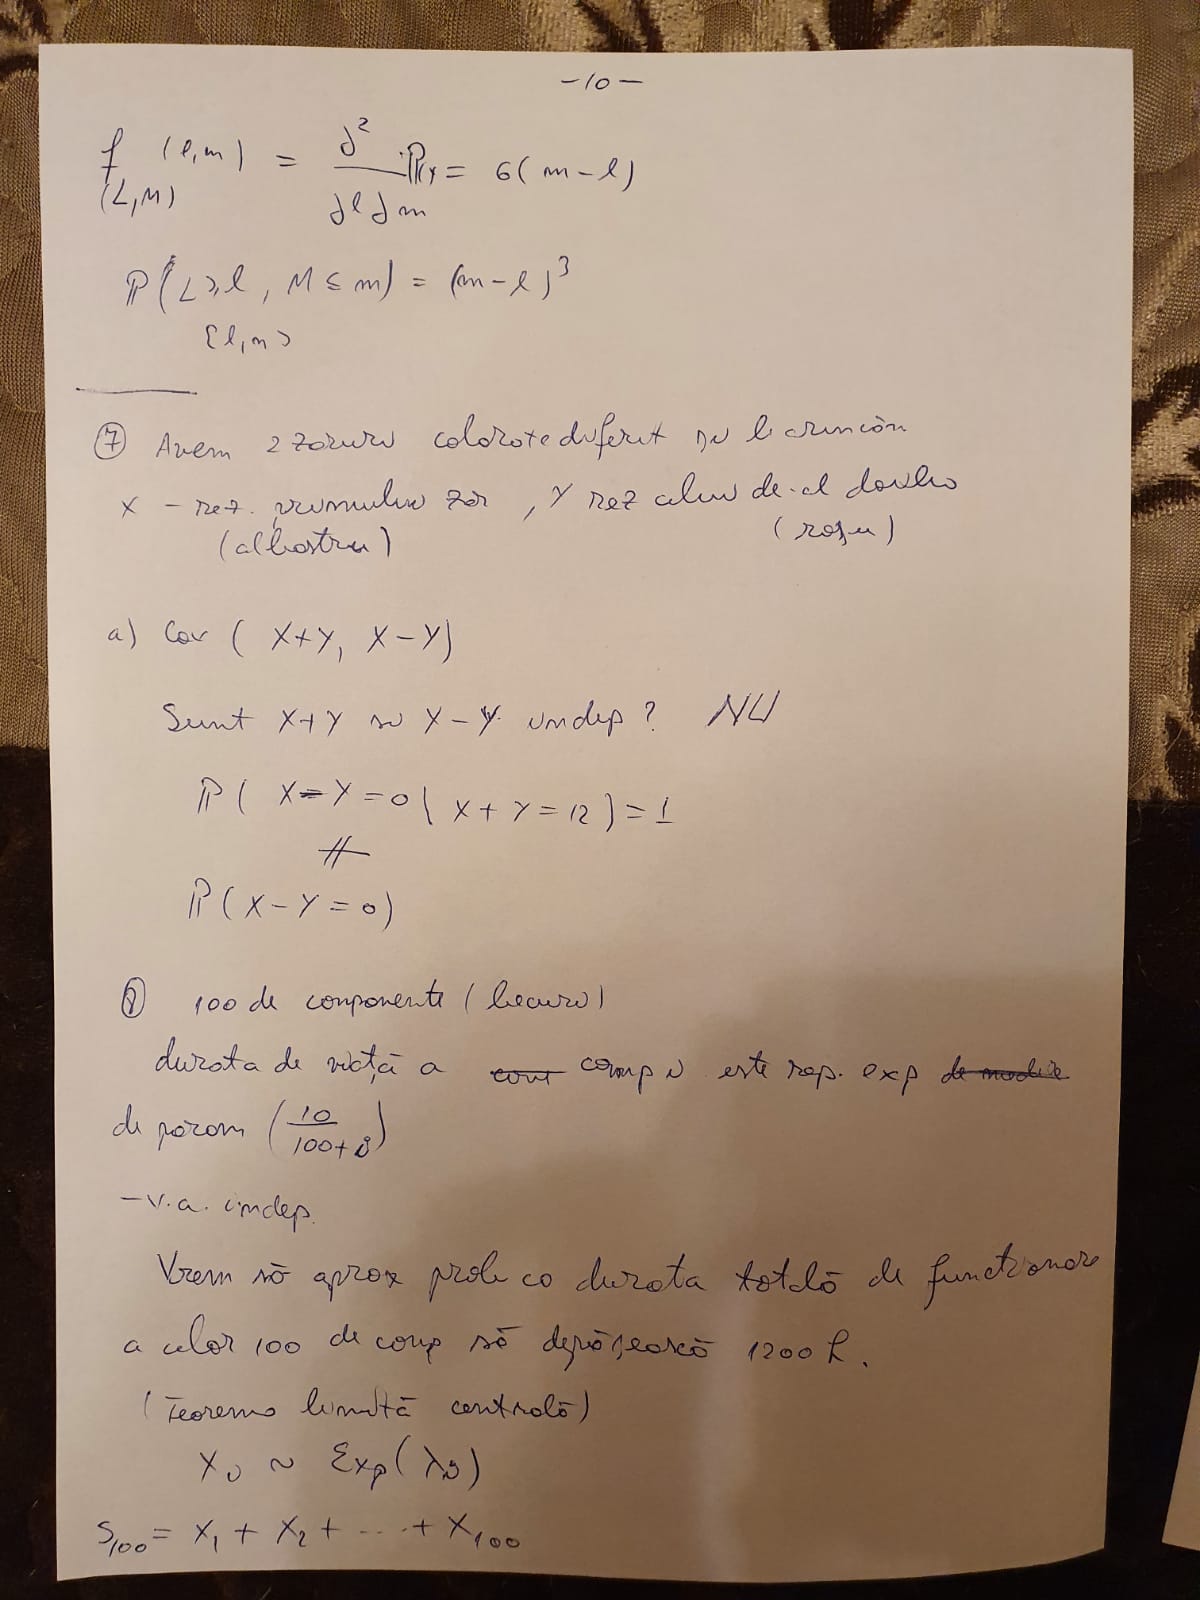 -10-
f (l,m) = ∂² / ∂l∂m = 6(m-l)
(L,M)
P(L≥l, M≤m) = (m-l)³
⑦ Avem 2 zaruri colorate diferit și le aruncăm
X - rez. primului zar, Y rez celui de-al doilea
(albastru) (roșu)
a) Cov (X+Y, X-Y)
Sunt X+Y și X-Y indep? NU
P( X-Y=0 | X+Y=12 ) = 1
≠
P(X-Y=0)
⑧ 100 de componente (becuri)
durata de viață a comp i este rep. exp de medie
de param (10/100+i)
- v.a. indep.
Vrem să aprox prob ca durata totală de functionare
a celor 100 de comp să depășească 1200 h.
(Teorema limită centrală)
Xi ~ Exp(λi)
S100 = X1 + X2 + ... + X100